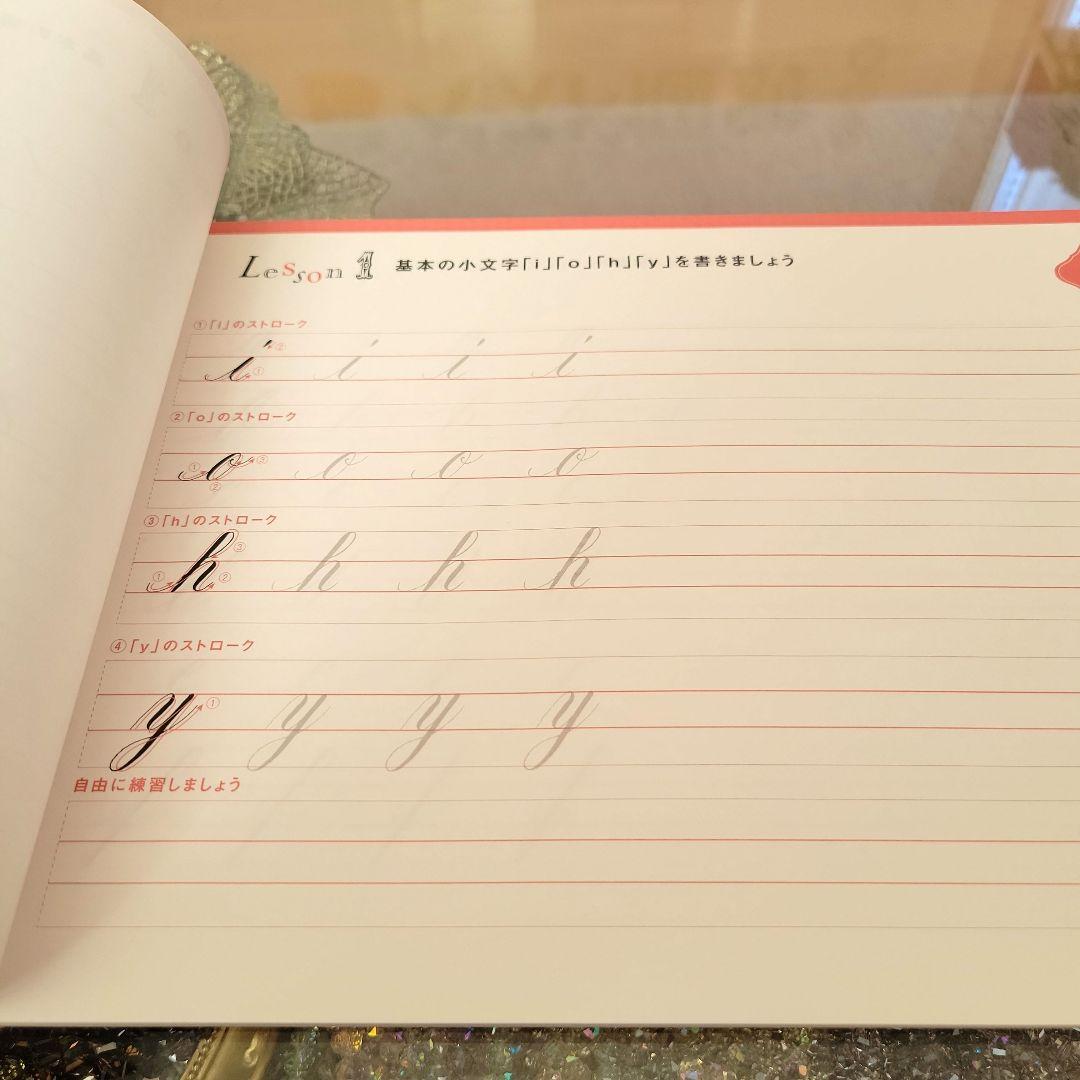 Lesson 1 基本の小文字「i」「o」「h」「y」を書きましょう
①「i」のストローク
i ② ① i i i
②「o」のストローク
① o ③ ② o o o
③「h」のストローク
① h ③ ② h h h
④「y」のストローク
y ① y y y
自由に練習しましょう